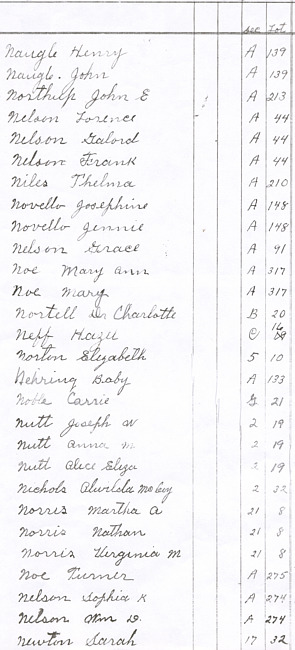 Sec Lot
Naugle Henry A 139
Naugle. John A 139
Northup John E A 213
Nelson Lorence A 44
Nelson Galord A 44
Nelson Frank A 44
Niles Thelma A 210
Novello Josephine A 148
Novello Jennie A 148
Nelson Grace A 91
Noe Mary Ann A 317
Noe Mary A 317
Nortell Dr Charlotte B 20
Neff Hazel C 16
Norton Elizabeth 5 10
Nehring Baby A 133
Noble Carrie G 21
Nutt Joseph W 2 19
Nutt Anna M 2 19
Nutt Alice Eliza 2 19
Nichols 2 32
Norris Martha A 21 8
Norris Nathan 21 8
Norris Virginia M 21 8
Noe Turner A 275
Nelson Sophia K A 274
Nelson Wm D. A 274
Newton Sarah 17 32